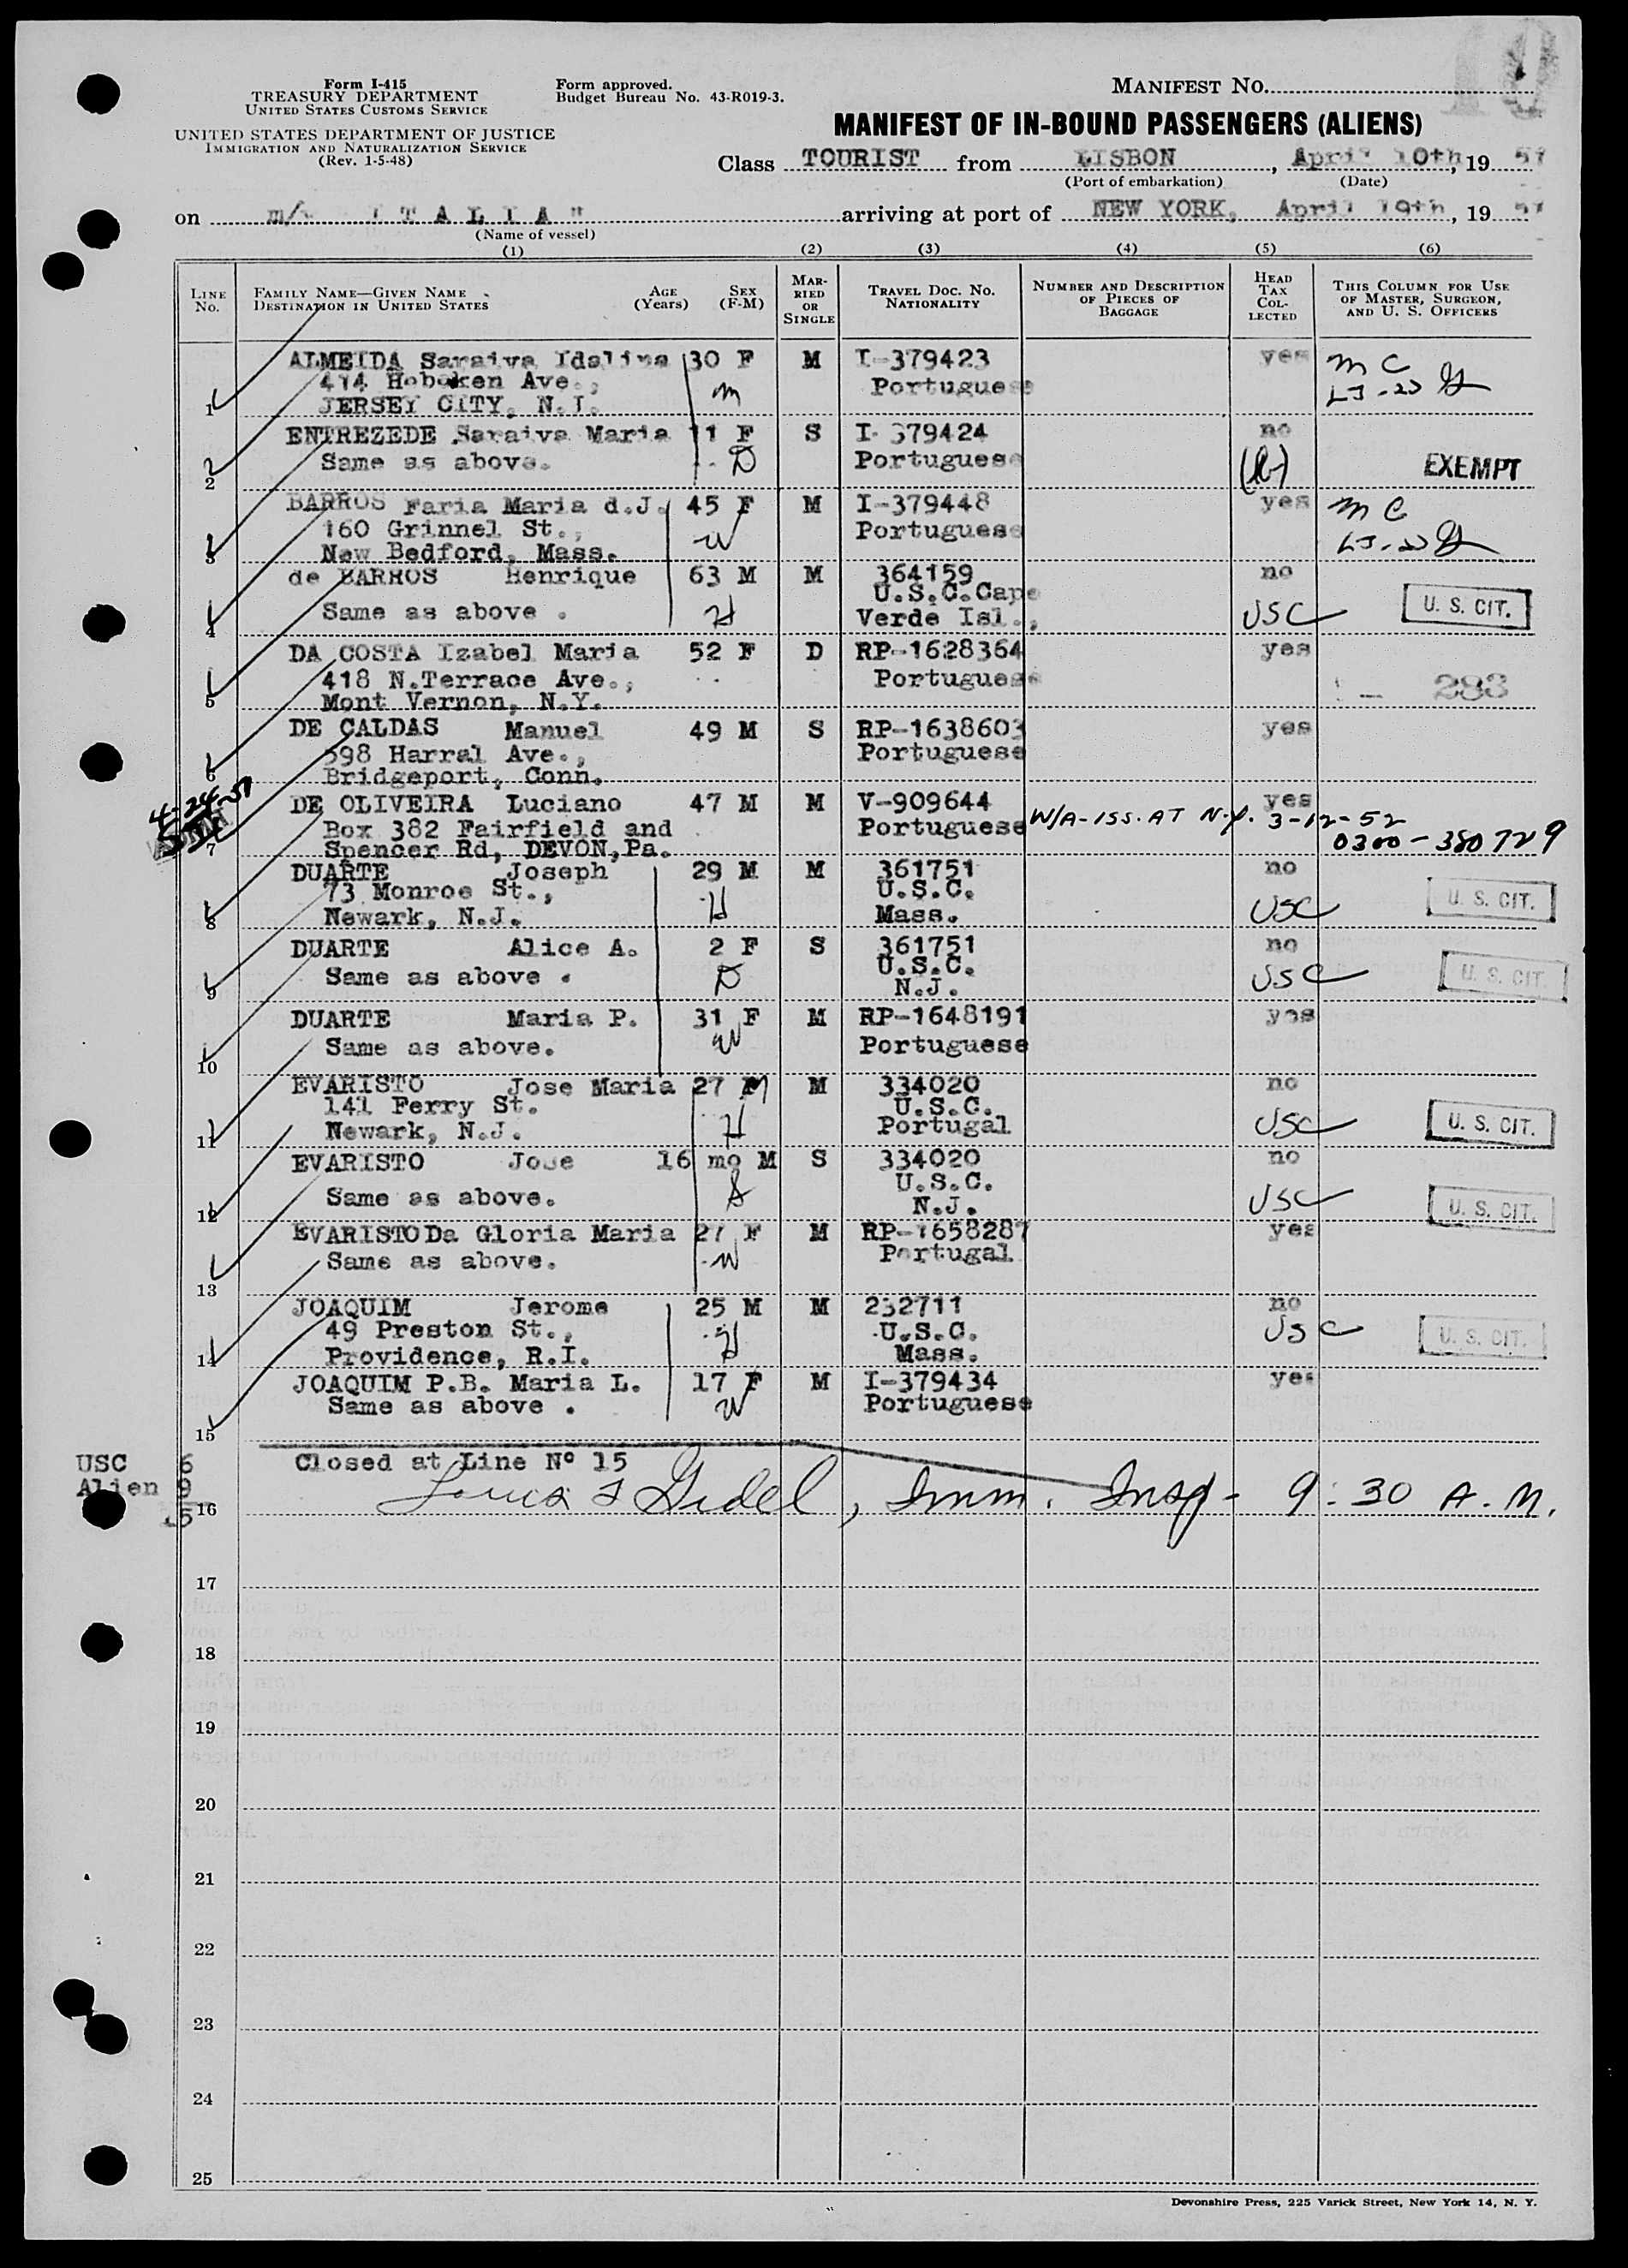 10
Form I-415
TREASURY DEPARTMENT
UNITED STATES CUSTOMS SERVICE
UNITED STATES DEPARTMENT OF JUSTICE
IMMIGRATION AND NATURALIZATION SERVICE
(Rev. 1-5-48)
Form approved.
Budget Bureau No. 43-R019-3.
MANIFEST NO.
MANIFEST OF IN-BOUND PASSENGERS (ALIENS)
Class TOURIST from LISBON, April 10th, 19
(Port of embarkation) (Date)
on ITALIA" arriving at port of NEW YORK, April 19th, 19
(Name of vessel)
(1) (2) (3) (4) (5) (6)
LINE No. FAMILY NAME—GIVEN NAME DESTINATION IN UNITED STATES AGE (Years) SEX (F-M) MARRIED OR SINGLE TRAVEL DOC. NO. NATIONALITY NUMBER AND DESCRIPTION OF PIECES OF BAGGAGE HEAD TAX COLLECTED THIS COLUMN FOR USE OF MASTER, SURGEON, AND U. S. OFFICERS
ALMEIDA Saraiva Idalina 30 F M I-379423 yes M C
414 Hoboken Ave., m Portuguese
1 JERSEY CITY, N.J.
ENTREZEDE Saraiva Maria 11 F S I-379424 no
2 Same as above. D Portuguese EXEMPT
BARROS Faria Maria d.J. 45 F M I-379448 yes M C
160 Grinnel St., W Portuguese
3 New Bedford, Mass.
de BARROS Henrique 63 M M 364159 no
U.S.C. Cape
4 Same as above . H Verde Isl., USC U. S. CIT.
DA COSTA Izabel Maria 52 F D RP-1628364 yes
418 N.Terrace Ave., Portuguese 283
5 Mont Vernon, N.Y.
DE CALDAS Manuel 49 M S RP-1638603 yes
598 Harral Ave., Portuguese
6 Bridgeport, Conn.
4-24-51
DE OLIVEIRA Luciano 47 M M V-909644 yes
Box 382 Fairfield and Portuguese W/A-ISS. AT N.Y. 3-12-52
7 Spencer Rd, DEVON,Pa. 0300-380729
DUARTE Joseph 29 M M 361751 no
73 Monroe St., H U.S.C.
8 Newark, N.J. Mass. USC U. S. CIT.
DUARTE Alice A. 2 F S 361751 no
Same as above . D U.S.C. USC U. S. CIT.
9 N.J.
DUARTE Maria P. 31 F M RP-1648191 yes
Same as above. W Portuguese
10
EVARISTO Jose Maria 27 M M 334020 no
141 Ferry St. U.S.C.
11 Newark, N.J. H Portugal USC U. S. CIT.
EVARISTO Jose 16 mo M S 334020 no
U.S.C.
12 Same as above. S N.J. USC U. S. CIT.
EVARISTO Da Gloria Maria 27 F M RP-1658287 yes
Same as above. W Portugal
13
JOAQUIM Jerome 25 M M 232711 no
49 Preston St., H U.S.C. USC U. S. CIT.
14 Providence, R.I. Mass.
JOAQUIM P.B. Maria L. 17 F M I-379434 yes
Same as above . W Portuguese
15
USC 6 Closed at Line Nº 15
Alien 9
15 16 Gidel, Imm. Insp - 9:30 A.M.
17
18
19
20
21
22
23
24
25
Devonshire Press, 225 Varick Street, New York 14, N. Y.